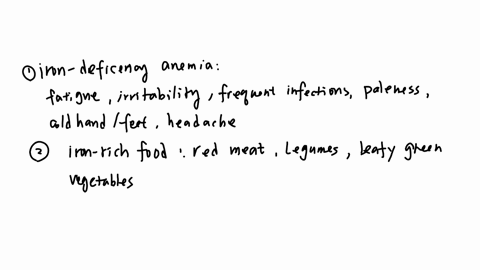 ① iron-deficenay anemia:
fatigne, irritability, frequent infections, paleness,
cold hand/feet, headache
② iron-rich food: red meat, Legumes, leafy green
vegetables